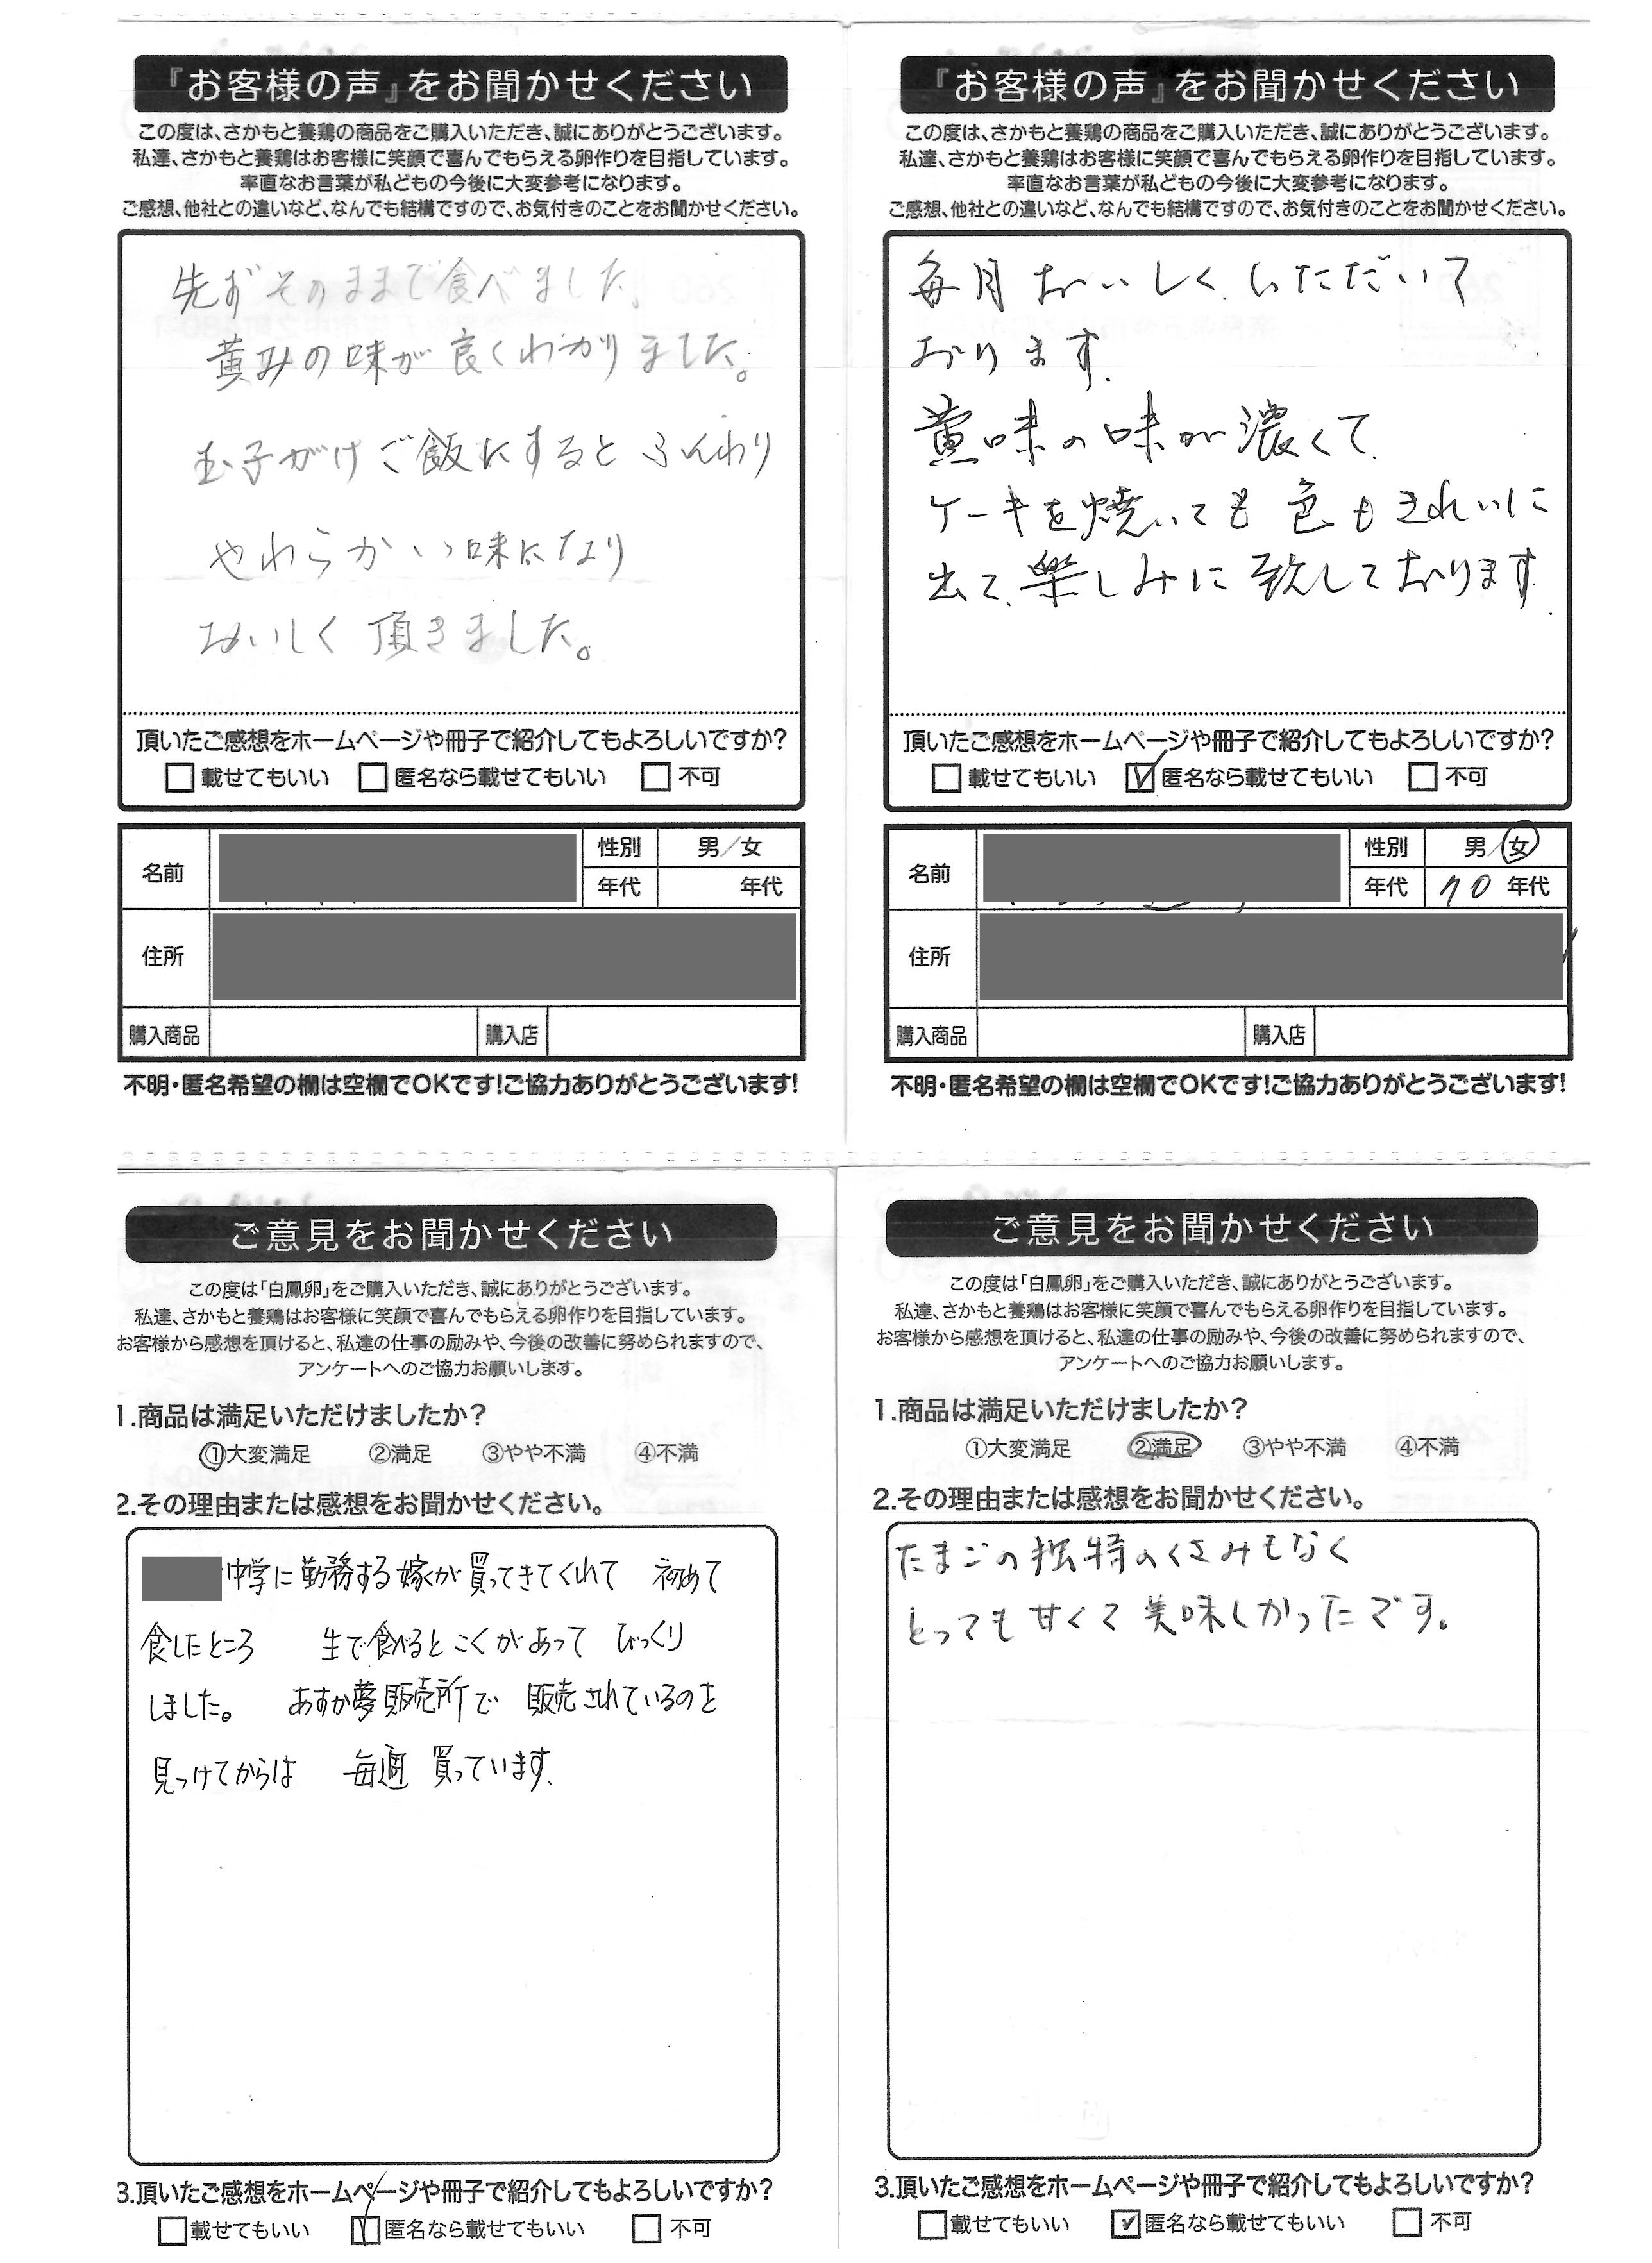 『お客様の声』をお聞かせください
この度は、さかもと養鶏の商品をご購入いただき、誠にありがとうございます。
私達、さかもと養鶏はお客様に笑顔で喜んでもらえる卵作りを目指しています。
率直なお言葉が私どもの今後に大変参考になります。
ご感想、他社との違いなど、なんでも結構ですので、お気付きのことをお聞かせください。
先ずそのままで食べました。
黄みの味が良くわかりました。
玉子がけご飯にするとふんわり
やわらかい味になり
おいしく頂きました。
頂いたご感想をホームページや冊子で紹介してもよろしいですか?
載せてもいい 匿名なら載せてもいい 不可
名前 性別 男/女
年代 年代
住所
購入商品 購入店
不明・匿名希望の欄は空欄でOKです!ご協力ありがとうございます!
『お客様の声』をお聞かせください
この度は、さかもと養鶏の商品をご購入いただき、誠にありがとうございます。
私達、さかもと養鶏はお客様に笑顔で喜んでもらえる卵作りを目指しています。
率直なお言葉が私どもの今後に大変参考になります。
ご感想、他社との違いなど、なんでも結構ですので、お気付きのことをお聞かせください。
毎月おいしくいただいて
おります.
黄味の味が濃くて
ケーキを焼いても色もきれいに
出て、楽しみに致しております.
頂いたご感想をホームページや冊子で紹介してもよろしいですか?
載せてもいい ☑匿名なら載せてもいい 不可
名前 性別 男/女
年代 70年代
住所
購入商品 購入店
不明・匿名希望の欄は空欄でOKです!ご協力ありがとうございます!
ご意見をお聞かせください
この度は「白鳳卵」をご購入いただき、誠にありがとうございます。
私達、さかもと養鶏はお客様に笑顔で喜んでもらえる卵作りを目指しています。
お客様から感想を頂けると、私達の仕事の励みや、今後の改善に努められますので、
アンケートへのご協力お願いします。
1.商品は満足いただけましたか?
①大変満足 ②満足 ③やや不満 ④不満
2.その理由または感想をお聞かせください。
中学に勤務する嫁が買ってきてくれて 初めて
食したところ 生で食べるとこくがあって びっくり
しました。 あすか夢販売所で 販売されているのを
見つけてからは 毎週 買っています.
3.頂いたご感想をホームページや冊子で紹介してもよろしいですか?
載せてもいい ☑匿名なら載せてもいい 不可
ご意見をお聞かせください
この度は「白鳳卵」をご購入いただき、誠にありがとうございます。
私達、さかもと養鶏はお客様に笑顔で喜んでもらえる卵作りを目指しています。
お客様から感想を頂けると、私達の仕事の励みや、今後の改善に努められますので、
アンケートへのご協力お願いします。
1.商品は満足いただけましたか?
①大変満足 ②満足 ③やや不満 ④不満
2.その理由または感想をお聞かせください。
たまごの独特のくさみもなく
とっても甘くて美味しかったです。
3.頂いたご感想をホームページや冊子で紹介してもよろしいですか?
載せてもいい ☑匿名なら載せてもいい 不可